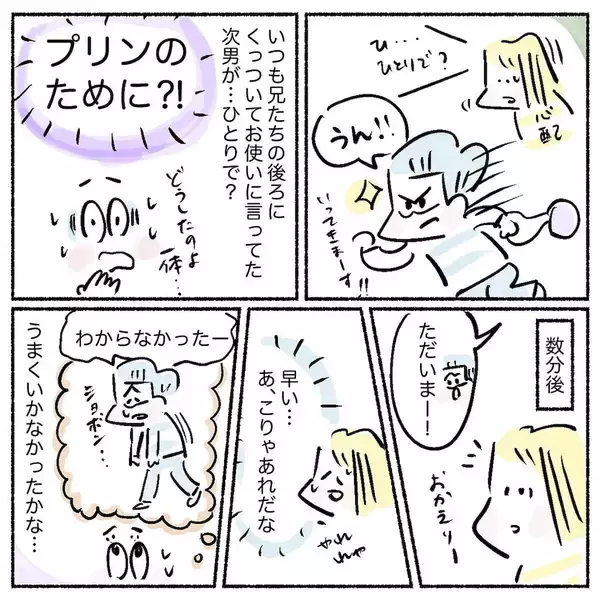 ひ…
ひとりで?
心配
うん!!
いってきまーす!!
いつも兄たちの後ろに
くっついてお使いに言ってた
次男が…ひとりで?
プリンの
ために?!
どうしたのよ
一体…
数分後
ただいまー!
おかえりー
早い…
あ、こりゃあれだな
やれ
やれ
わからなかったー
ショボン…
うまくいかなかったかな…